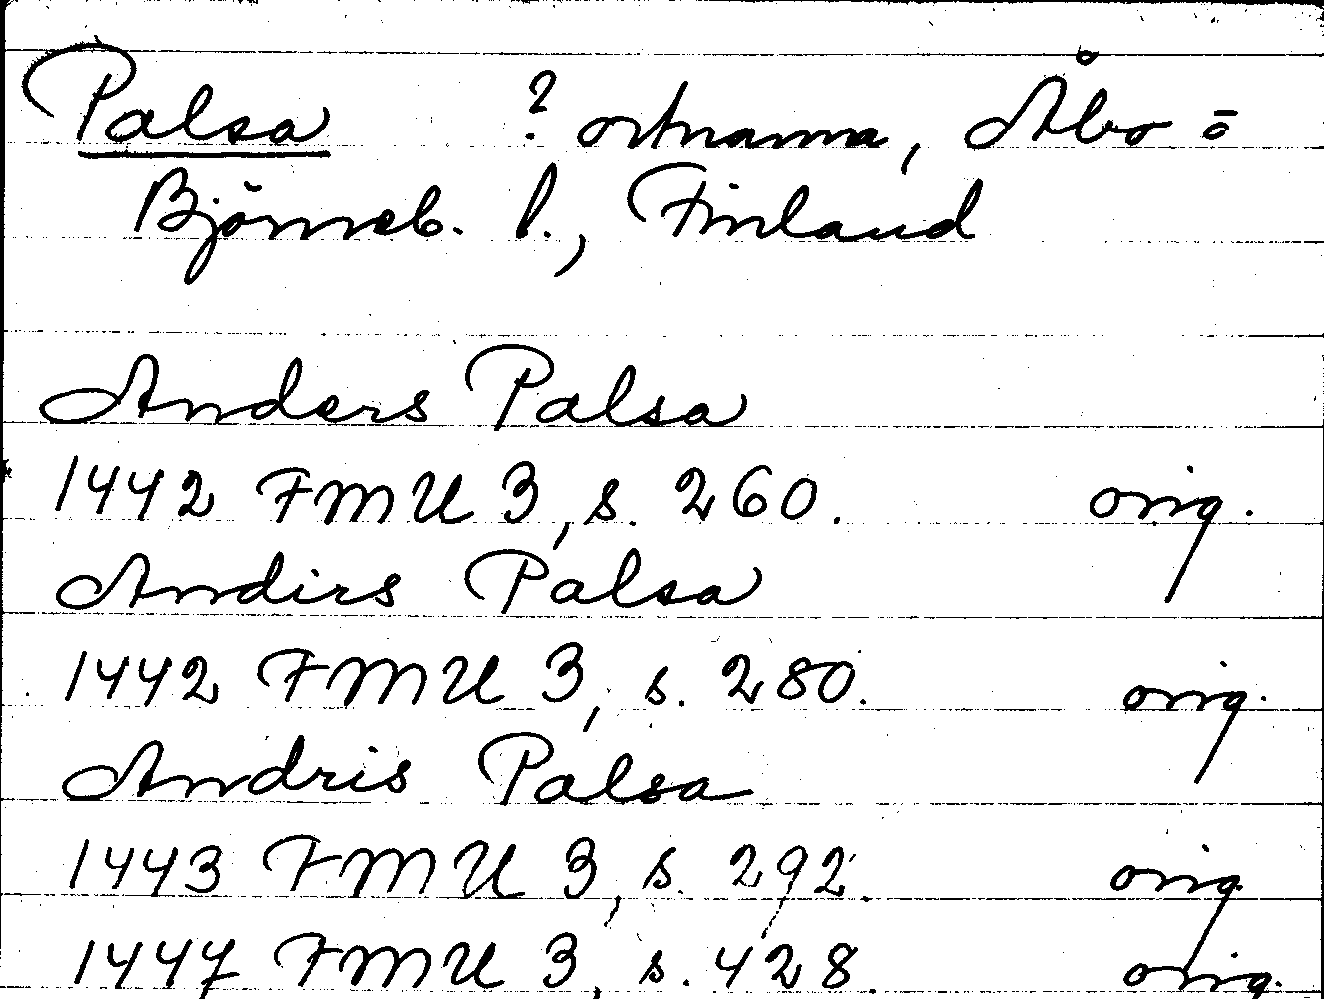 Palsa ? ortnamn, Åbo o
Björneb. l., Finland
Anders Palsa
1442 FMU 3, s. 260. orig.
Andirs Palsa
1442 FMU 3, s. 280. orig.
Andris Palsa
1443 FMU 3, s. 292. orig.
1447 FMU 3, s. 428. orig.